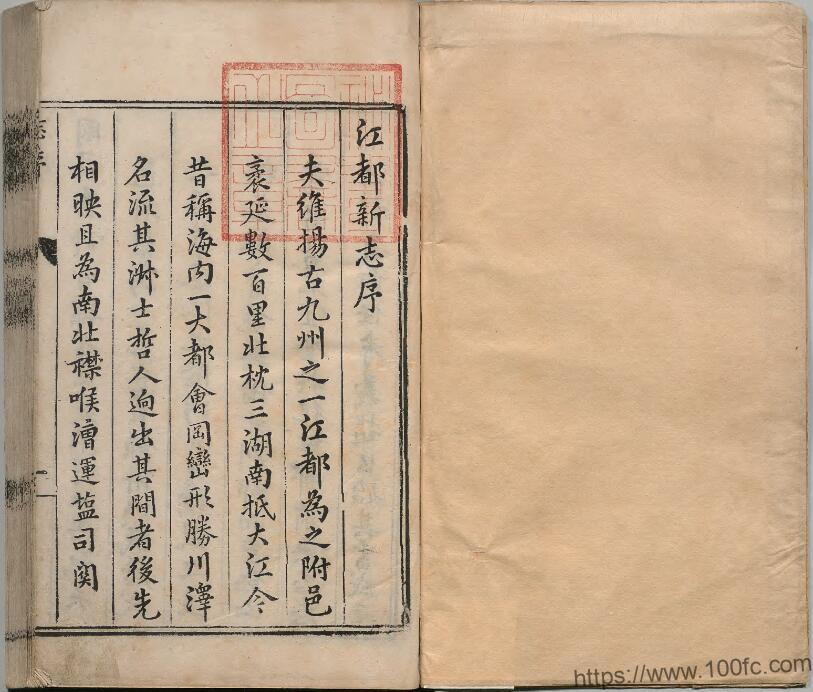 江都新志序
夫維揚古九州之一江都為之附邑
袤延數百里北枕三湖南抵大江今
昔稱海内一大都會岡巒形勝川澤
名流其淋士哲人逈出其間者後先
相映且為南北襟喉漕運塩司関
志序
一
https://www.100fc.com